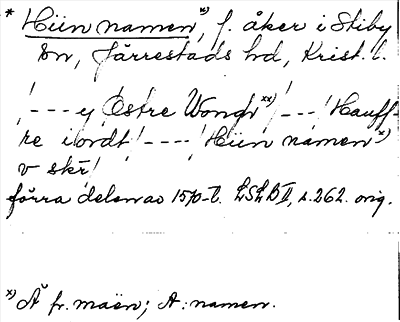 * Hiin namen x), f. åker i Stiby
sn, Järrestads hd, Krist. l.
! --- ej Östre Wongr xx) ! --- ! Hauff-
re iordt ! ---- ! Hiin namen x)
v skr !
förra delen av 1570-t. LSLB II, s. 262. orig.
x) Ä fr. maën; A: namen.